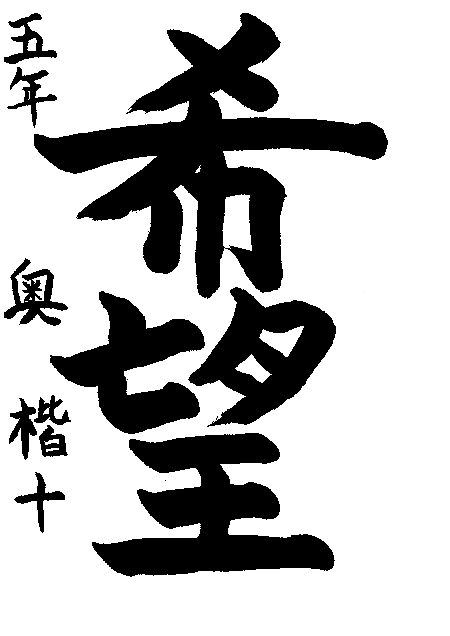 希望
五年 奥 楷十